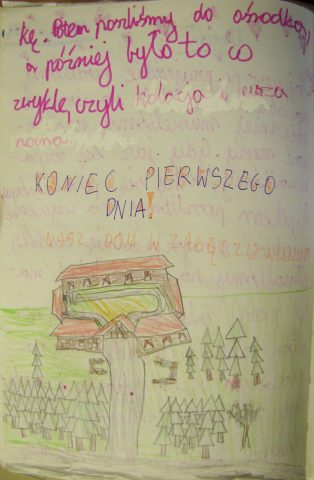 kę. Potem poszliśmy do ośrodka,
a później było to co
zwykle, czyli kolacja i cisza
nocna.
KONIEC PIERWSZEGO
DNIA!
NASZ DOM W ZAŁĘCZU